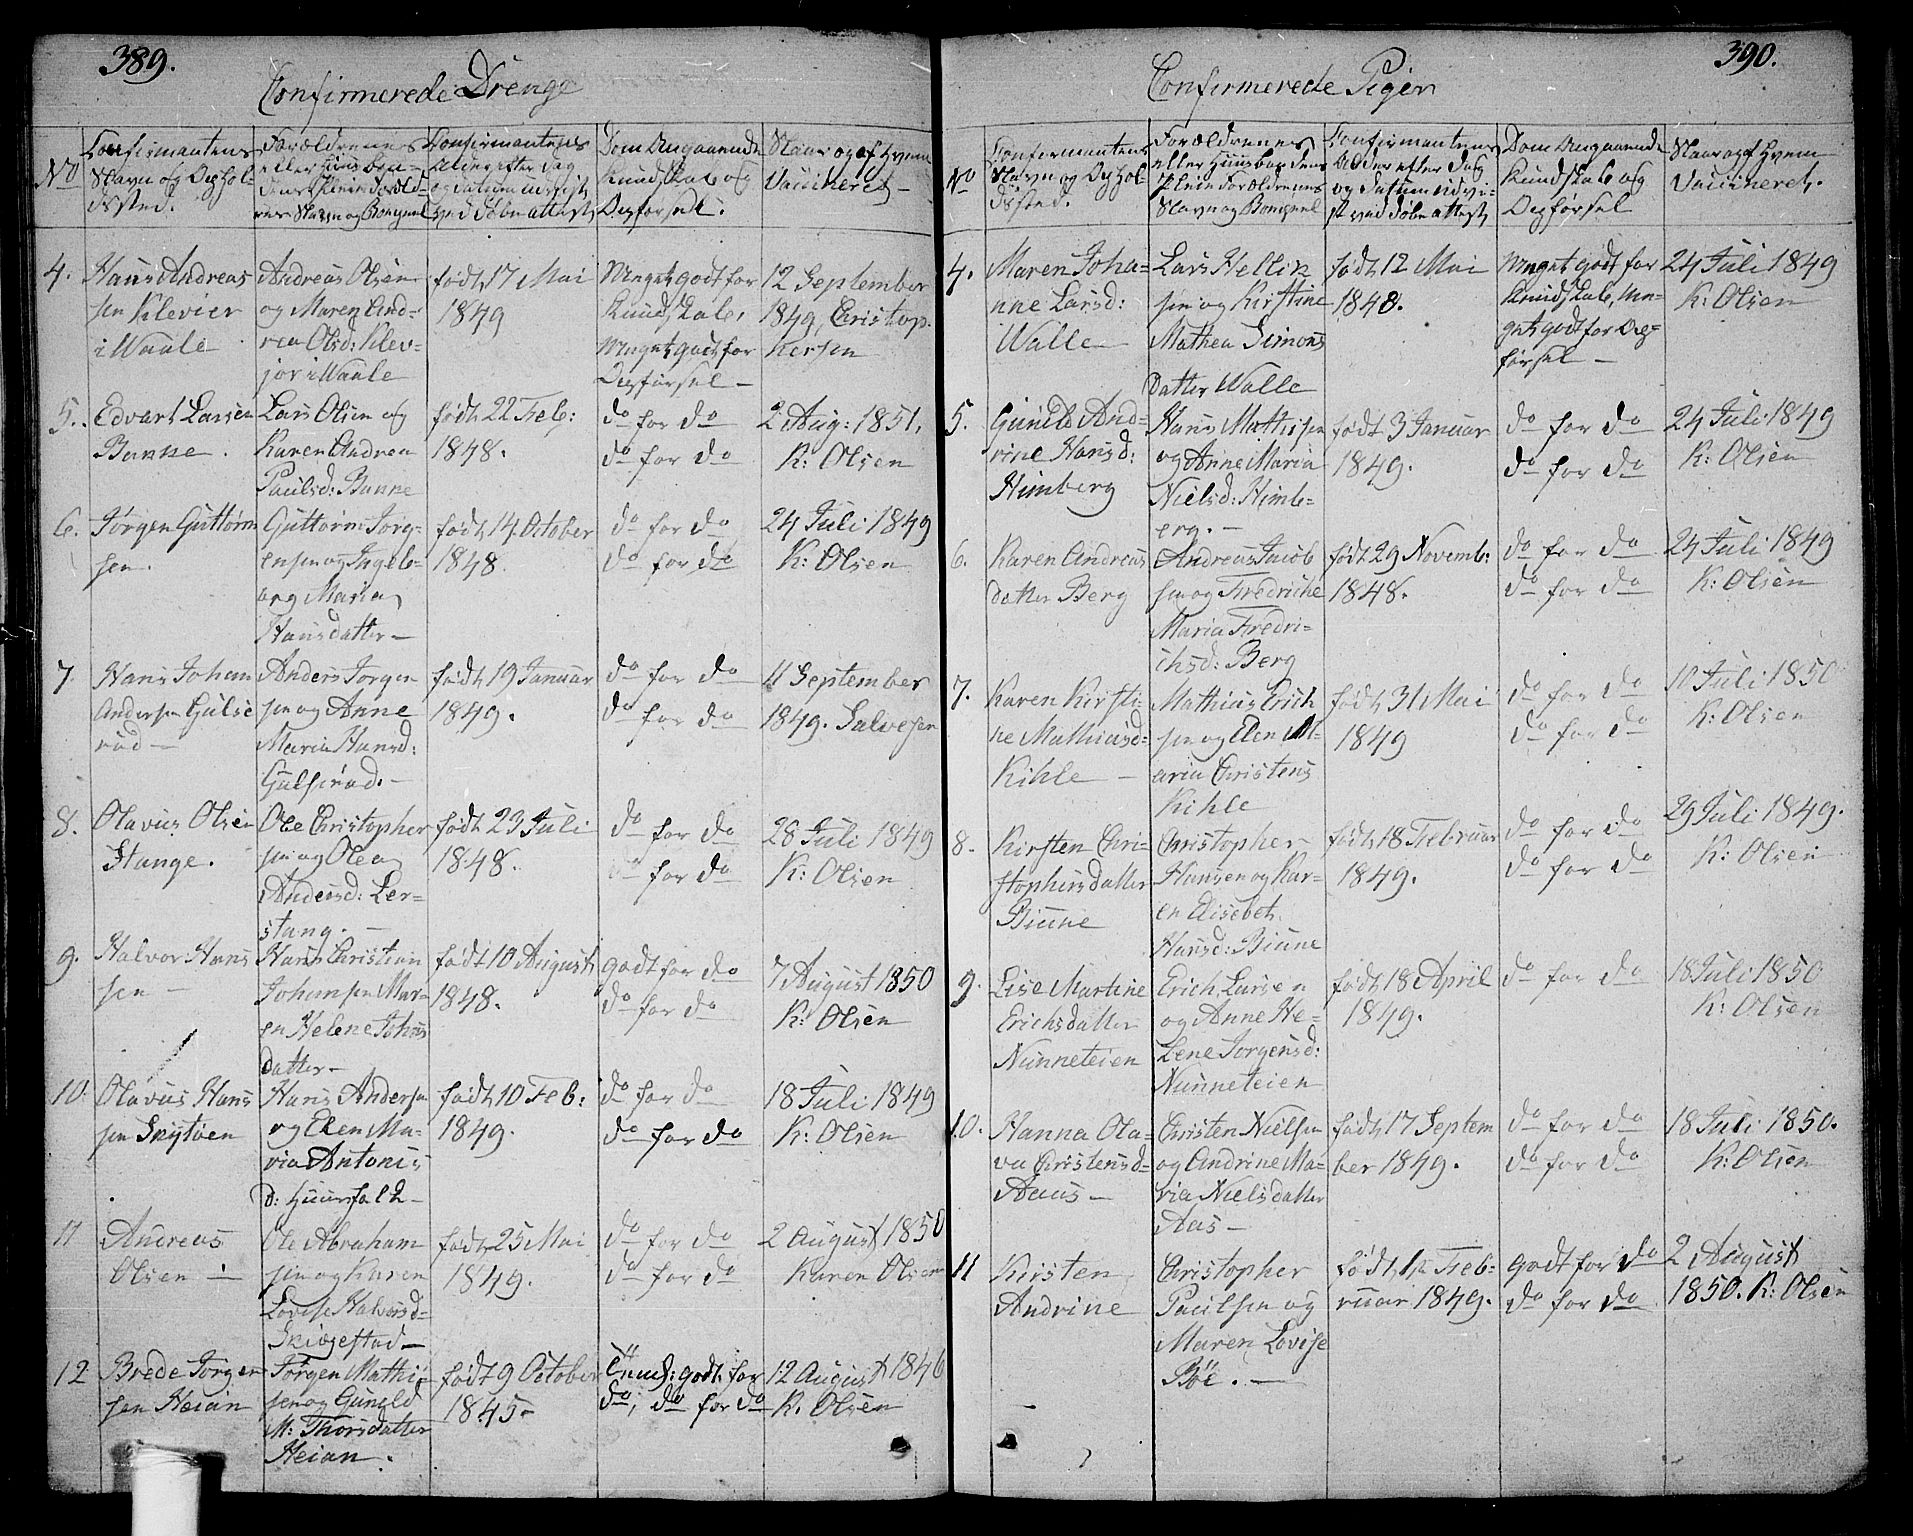 389.
Confirmerede Drenge
No
Confirmantens
Navn og Ophol-
dssted.
Forældrenes
eller Huusbon-
dens & Pleieforæld-
renes Navn og Bopæl
Confirmantens
Alder efter Dag
og Datum udviist
ved Døbeattest
Dom Angaaende
Kundskab og
Opførsel.
Naar og af Hvem
Vaccineret
4.
Hans Andreas
sen Klevier
i Waale
Andreas Olsen
og Maren And-
rea Olsd: Klev-
jer i Waale
født 17 Mai
1849
Meget godt for
Kundskab,
Meget godt for
Opførsel —
12 September
1849, Christop-
hersen
5.
Edvart Larsen
Banne.
Lars Olsen og
Karen Andrea
Paulsd: Banne
født 22 Feb:
1848.
do for do
do for do
2 Aug: 1851.
K: Olsen
6.
Jørgen Guttorm
sen.
Guttorm Jørg-
ensen og Ingeb-
org Maria
Hansdatter —
født 14 October
1848
do for do
do for do
24 Juli 1849
K: Olsen
7.
Hans Johan
Andersen Gulse
rød —
Anders Jørgen
sen og Anne
Maria Hansd:
Gulserød. —
født 19 Januar
1849.
do for do
do for do
11 September
1849. Salvesen
8.
Olavus Olsen
Stange.
Ole Christopher
sen og Olea
Andersd: Ler-
stang. —
født 23 Juli
1848.
do for do
do for do
28 Juli 1849
K: Olsen
9.
Halvor Hans
sen —
Hans Christian
Johansen Mar-
en Helene Johans
datter —
født 10 August
1848.
godt for do
do for do
7 August 1850
K: Olsen
10.
Olavus Hans
sen Skytøen
Hans Anders
og Elen Ma-
ria Antonis
D: Huusfalt —
født 10 Feb:
1849.
do for do
do for do
18 Juli 1849
K: Olsen
11
Andreas
Olsen —
Ole Abraham
sen og Karen
Lovise Halvorsd-
Skiøgestad —
født 25 Mai
1849.
do for do
do for do
2 August 1850
Karen Olsen
12
Brede Jørgen
sen Heian
Jørgen Mathi
sen og Gunild
M: Thorsdatter
Heian.
født 9 October
1845 —
godt for
do, do for do
12 August 1846
K. Olsen
390.
Confirmerede Piger
No
Confirmantens
Navn og Ophol-
dssted.
Forældrenes
eller Huusbondens
& Pleieforældrenes
Navn og Bopæl
Confirmantens
Alder efter Dag
og Datum udvi-
st ved Døbeattest
Dom Angaaende
Kundskab og
Opførsel
Naar og af Hvem
Vaccineret.
4.
Maren Joha-
nne Larsd:
Walle —
Lars Hellik
sen og Kirstine
Mathea Simons
datter Walle
født 12 Mai
1848.
Meget godt for
Kundskab, Me-
get godt for Op-
førsel —
24 Juli 1849
K: Olsen
5.
Gunild And-
rine Hansd:
Himberg
Hans Mathisen
og Anne Maria
Nielsd: Himb-
erg. —
født 3 Januar
1849.
do for do
do for do
24 Juli 1849
K: Olsen
6.
Karen Andreas
datter Berg
Andreas Jacob
sen og Fredriche
Maria Fredri-
chsd: Berg
født 29 Novemb:
1848.
do for do
do for do
24 Juli 1849
K: Olsen
7.
Karen Kirsti-
ne Mathiasd-
Kihle —
Mathias Erich
sen og Elen M-
aria Christens
Kihle
født 31 Mai
1849
do for do
do for do
10 Juli 1850
K: Olsen
8.
Kirsten Chri-
stophersdatter
Biune
Christopher
Hansen og Kar-
en Elisebet
Hansd: Biune
født 18 Februar
1849.
do for do
do for do
29 Juli 1849.
K: Olsen
9.
Lise Martine
Erichsdatter
Nunneteien
Erich Larsen
og Anne He-
lene Jorgensd:
Nunneteien
født 18 April
1849.
do for do
18 Juli 1850
K: Olsen
10.
Hanna Ola-
va Christensd-
Aaus —
Christen Nielsen
og Andrine Ma-
ria Nielsdatter
Aas —
født 17 Septem
ber 1849.
do for do
do for do
18 Juli 1850.
K: Olsen
11
Kirsten
Andrine
Christopher
Paulsen og
Maren Lovise
Bøe. —
født 1ste Feb-
ruar 1849.
godt for do
do for do
2 August
1850. K: Olsen